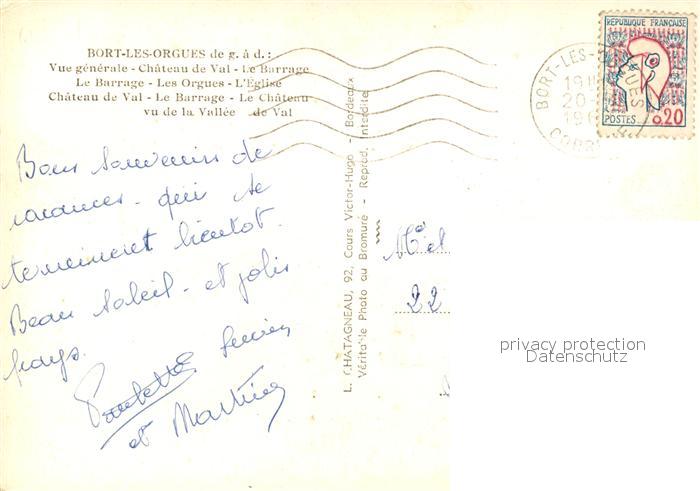 BORT-LES-ORGUES de g. à d. :
Vue générale - Château de Val - Le Barrage
Le Barrage - Les Orgues - L'Eglise
Château de Val - Le Barrage - Le Château
vu de la Vallée de Val
Bons souvenirs de
vacances - qui se
terminent bientot.
Beau soleil - et jolis
pays.
Paulette Lucien
et Martine
L. CHATAGNEAU, 92, Cours Victor-Hugo - Bordeaux
Véritable Photo au Bromure - Reprod. Interdite
22
REPUBLIQUE FRANÇAISE
POSTES 0,20
BORT-LES-ORGUES
privacy protection
Datenschutz